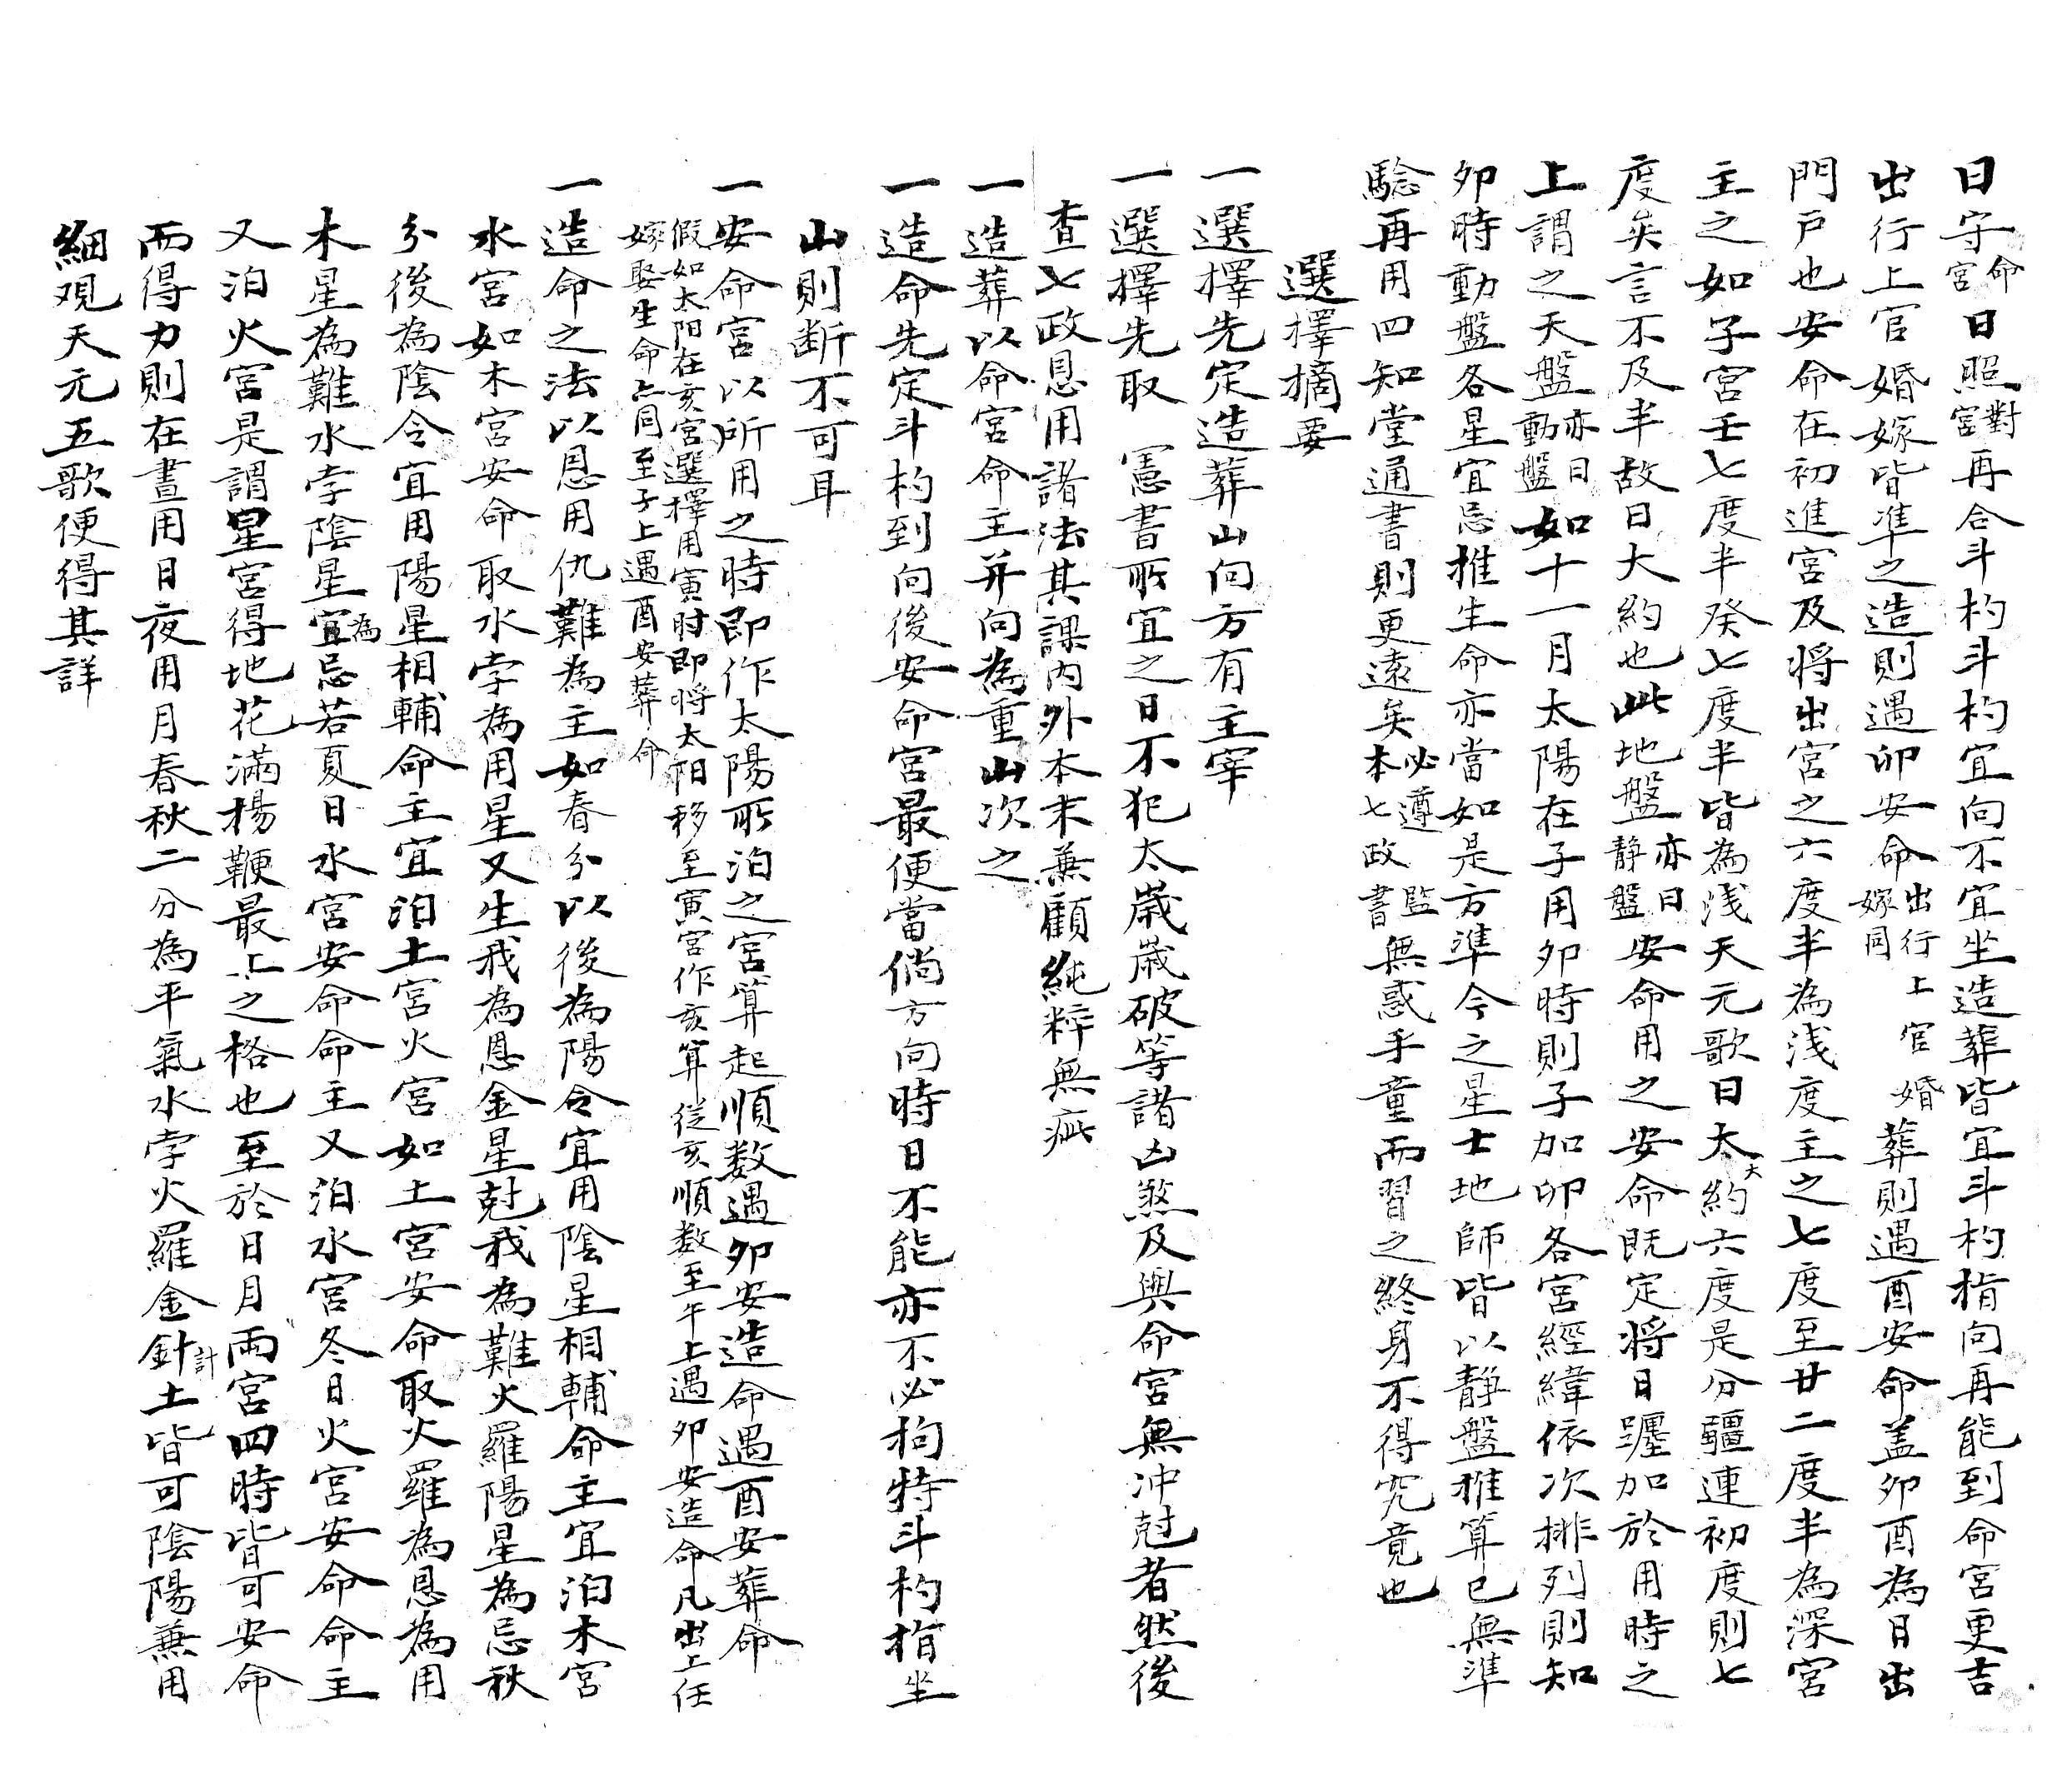 日守命宮日照對宮再合斗杓斗杓宜向不宜坐造葬皆宜斗杓指向再能到命宮更吉
出行上官婚嫁皆準之造則遇卯安命出行上官婚嫁同葬則遇酉安命盖卯酉為日出
門戶也安命在初進宮及將出宮之六度半為浅度主之七度至廿二度半為深宮
主之如子宮壬七度半癸七度半皆為浅天元歌曰太大約六度是分疆連初度則七
度矣言不及半故曰大約也此地盤亦曰静盤安命用之安命既定将日躔加於用時之
上謂之天盤亦曰動盤如十一月太陽在子用卯時則子加卯各宮經緯依次排列則知
卯時動盤各星宜忌推生命亦當如是方準今之星士地師皆以静盤推算已無準
騐再用四知堂通書則更遠矣必遵監本七政書無惑乎童而習之終身不得究竟也
選擇摘要
一選擇先定造葬山向方有主宰
一選擇先取 憲書所宜之日不犯太歲歲破等諸凶煞及與命宮無冲尅者然後
查七政恩用諸法其課内外本末兼顧純粹無疵
一造葬以命宮命主并向為重山次之
一造命先定斗杓到向後安命宮最便當倘方向時日不能亦不必拘特斗杓指坐
山則断不可耳
一安命宮以所用之時即作太陽所泊之宮算起順数遇卯安造命遇酉安葬命
假如太阳在亥宮選擇用寅时即将太阳移至寅宮作亥算從亥順数至午上遇卯安造命凡出上任
嫁娶生命亦同至子上遇酉安葬命
一造命之法以恩用仇難為主如春分以後為陽令宜用陰星相輔命主宜泊木宮
水宮如木宮安命取水孛為用星又生我為恩金星尅我為難火羅陽星為忌秋
分後為陰令宜用陽星相輔命主宜泊土宮火宮如土宮安命取火羅為恩為用
木星為難水孛陰星宜為忌若夏日水宮安命命主又泊水宮冬日火宮安命命主
又泊火宮是謂星宮得地花滿楊鞭最上之格也至於日月兩宮四時皆可安命
而得力則在晝用日夜用月春秋二分為平氣水孛火羅金針計土皆可陰陽兼用
細观天元五歌便得其詳